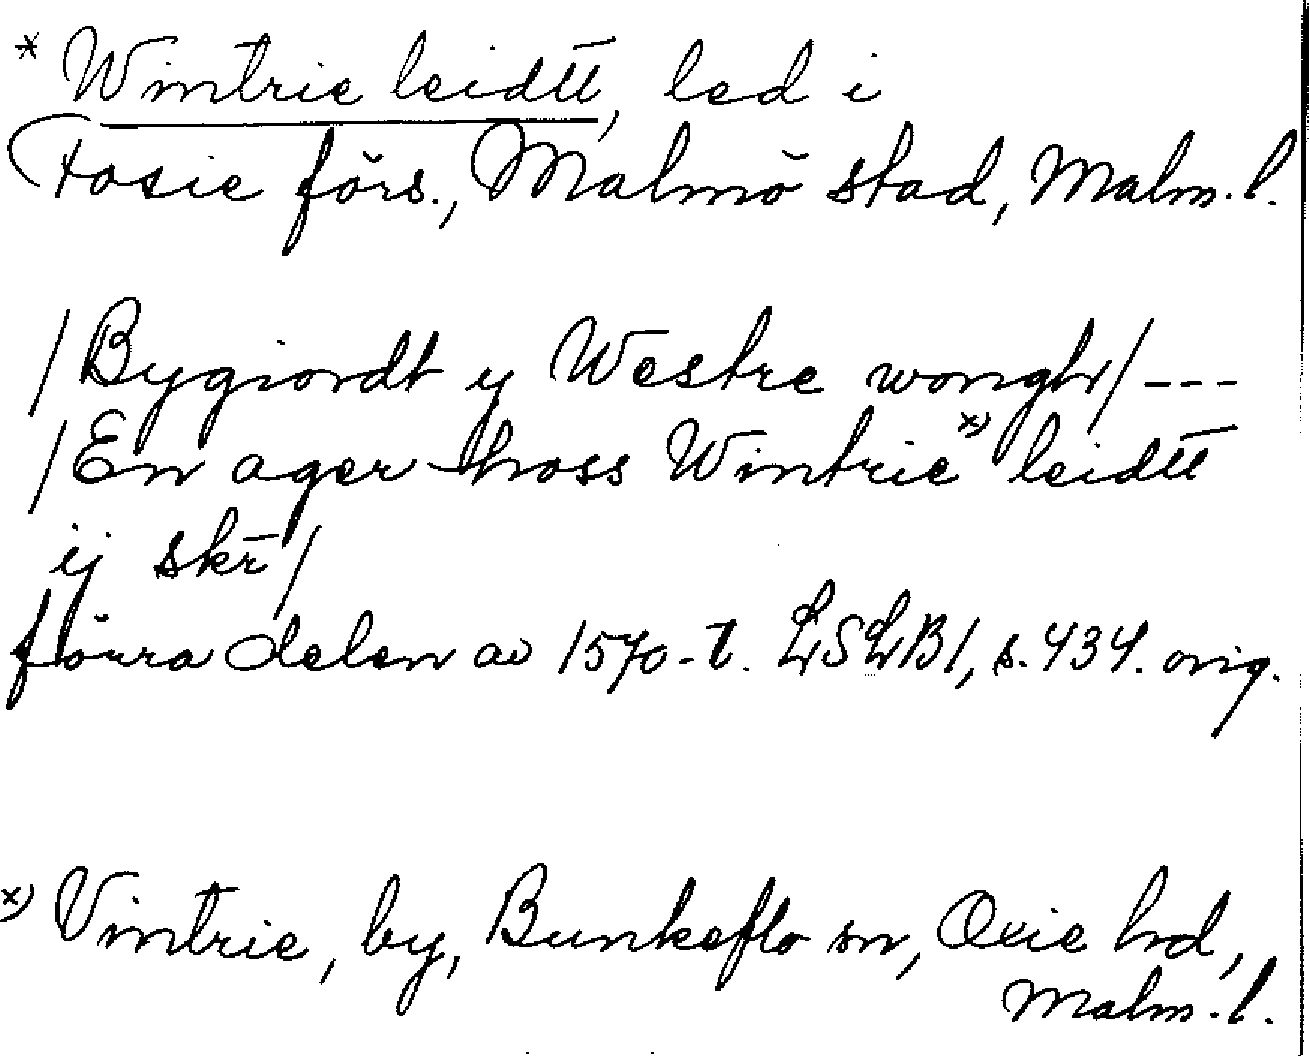 * Wintrie leidtt, led i
Fosie förs., Malmö stad, Malm.l.
/Bygiordt y Westre wongh/---
/En ager hoss Wintrie x) leidtt
ij skr/
förra delen av 1570-t. LSLB1, s. 434. orig.
x) Vintrie, by, Bunkeflo sn, Oxie hd,
Malm.l.